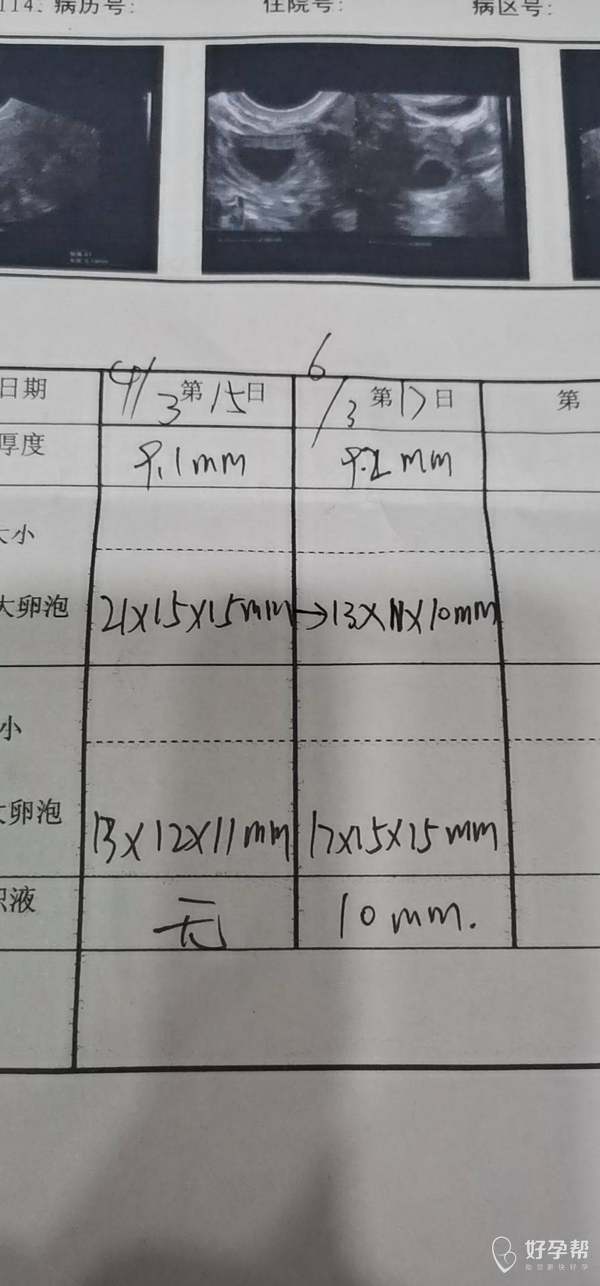 114. 病历号: 住院号: 病区号:
日期 4/3 第15日 6/3 第17日 第
厚度 9.1mm 9.2mm
大小
大卵泡 21×15×15mm→13×11×10mm
小
大卵泡 13×12×11mm 17×15×15mm
积液 无 10mm.
好孕帮